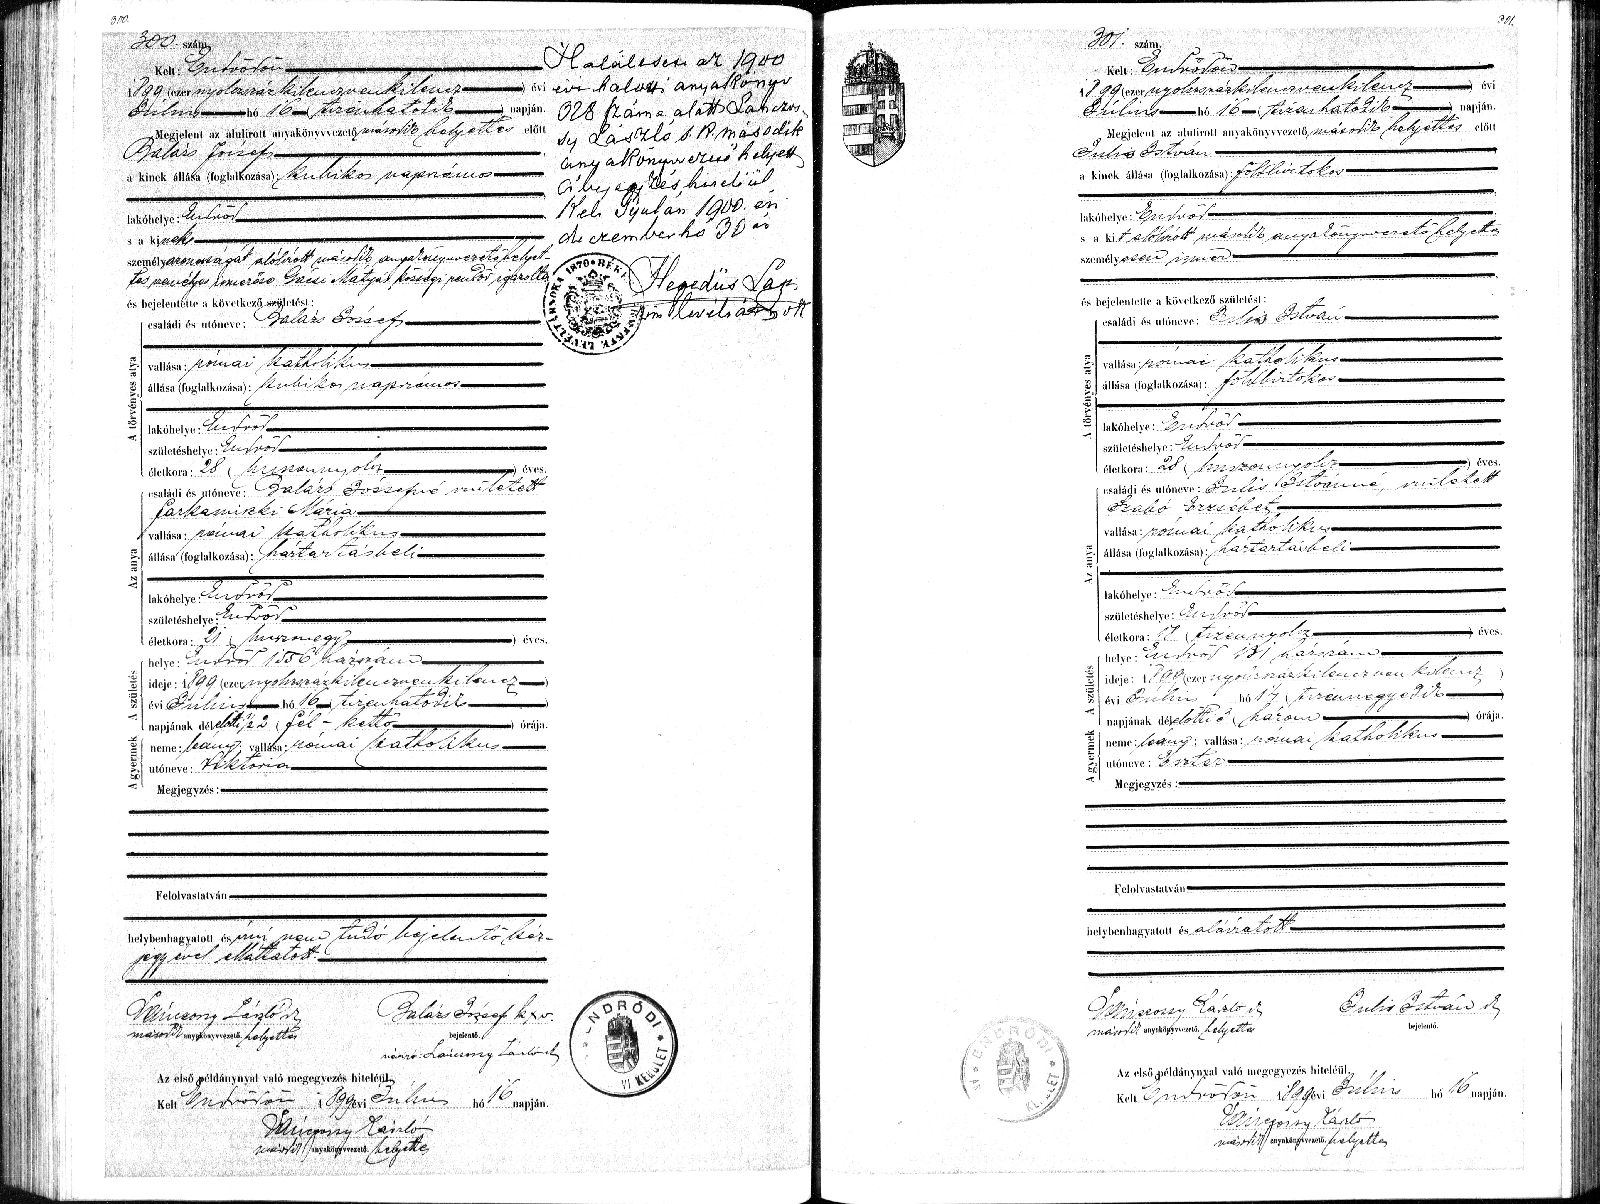 300.
300. szám.
Kelt: Endrődön
1899 (ezer nyolczszázkilenczvenkilencz ) évi
Július hó 16 (tizenhatodik ) napján.
Megjelent az alulirott anyakönyvvezető, második helyettes előtt
Balázs József
a kinek állása (foglalkozása): kubikos napszámos
lakóhelye: Endrőd
s a kinek
személyazonosságát alólirott második anyakönyvvezető helyet-
tes személyes ismerőse Mátyás községi rendőr igazolta
és bejelentette a következő születést:
A törvényes atya
családi és utóneve: Balázs József
vallása: római katholikus
állása (foglalkozása): kubikos napszámos
lakóhelye: Endrőd
születéshelye: Endrőd
életkora: 28 (huszonnyolcz ) éves.
Az anya
családi és utóneve: Balázs Józsefné született
Farkasinszki Mária
vallása: római katholikus
állása (foglalkozása): háztartásbeli
lakóhelye: Endrőd
születéshelye: Endrőd
életkora: 21 (huszonegy ) éves.
A születés
helye: Endrőd 1556 házszám
ideje: 1899 (ezer nyolczszázkilenczvenkilencz )
évi Július hó 16 (tizenhatodik )
napjának délelőtti 1/2 2 (fél - kettő ) órája.
A gyermek
neme: leány; vallása: római katholikus
utóneve: Viktória
Megjegyzés:
Felolvastatván
helybenhagyatott és írni nem tudó bejelentő kéz-
jegyével elláttatott.
Vánczosy László
második anyakönyvvezető. helyettes
Balázs József k.x.v.
bejelentő.
László
Az első példánynyal való megegyezés hiteléül
Kelt Endrődön 1899 évi Július hó 16 napján.
László
második anyakönyvvezető. helyettes
Haláleset az 1900
évi halotti anyakönyv
328 száma alatt
László s.k. második
anyakönyvvezető helyett.
A bejegyzés hiteléül.
Kelt Gyulán, 1900. évi
deczember hó 30 án
Hegedüs
levéltárnok
ENDRŐDI
VI KERÜLET
301.
301. szám.
Kelt: Endrődön
1899 (ezer nyolczszázkilenczvenkilencz ) évi
Július hó 16 (tizenhatodik ) napján.
Megjelent az alulirott anyakönyvvezető, második helyettes előtt
Iulis István
a kinek állása (foglalkozása): földbirtokos
lakóhelye: Endrőd
s a kit alólirott második anyakönyvvezető helyettes
személyesen ismer
és bejelentette a következő születést:
A törvényes atya
családi és utóneve: Iulis István
vallása: római katholikus
állása (foglalkozása): földbirtokos
lakóhelye: Endrőd
születéshelye: Endrőd
életkora: 28 (huszonnyolcz ) éves.
Az anya
családi és utóneve: Iulis Istvánné, született
Szabó Erzsébet
vallása: római katholikus
állása (foglalkozása): háztartásbeli
lakóhelye: Endrőd
születéshelye: Endrőd
életkora: (tizennyolcz ) éves.
A születés
helye: Endrőd 131 házszám
ideje: 1899 (ezer nyolczszázkilenczvenkilencz )
évi Július hó 14 (tizennegyedik )
napjának délelőtti 3 (három ) órája.
A gyermek
neme: leány; vallása: római katholikus
utóneve: Eszter
Megjegyzés:
Felolvastatván
helybenhagyatott és aláiratott.
László
második anyakönyvvezető. helyettes
Iulis István
bejelentő.
Az első példánynyal való megegyezés hiteléül
Kelt Endrődön 1899 évi Július hó 16 napján.
László
második anyakönyvvezető. helyettes
ENDRŐDI
VI KERÜLET